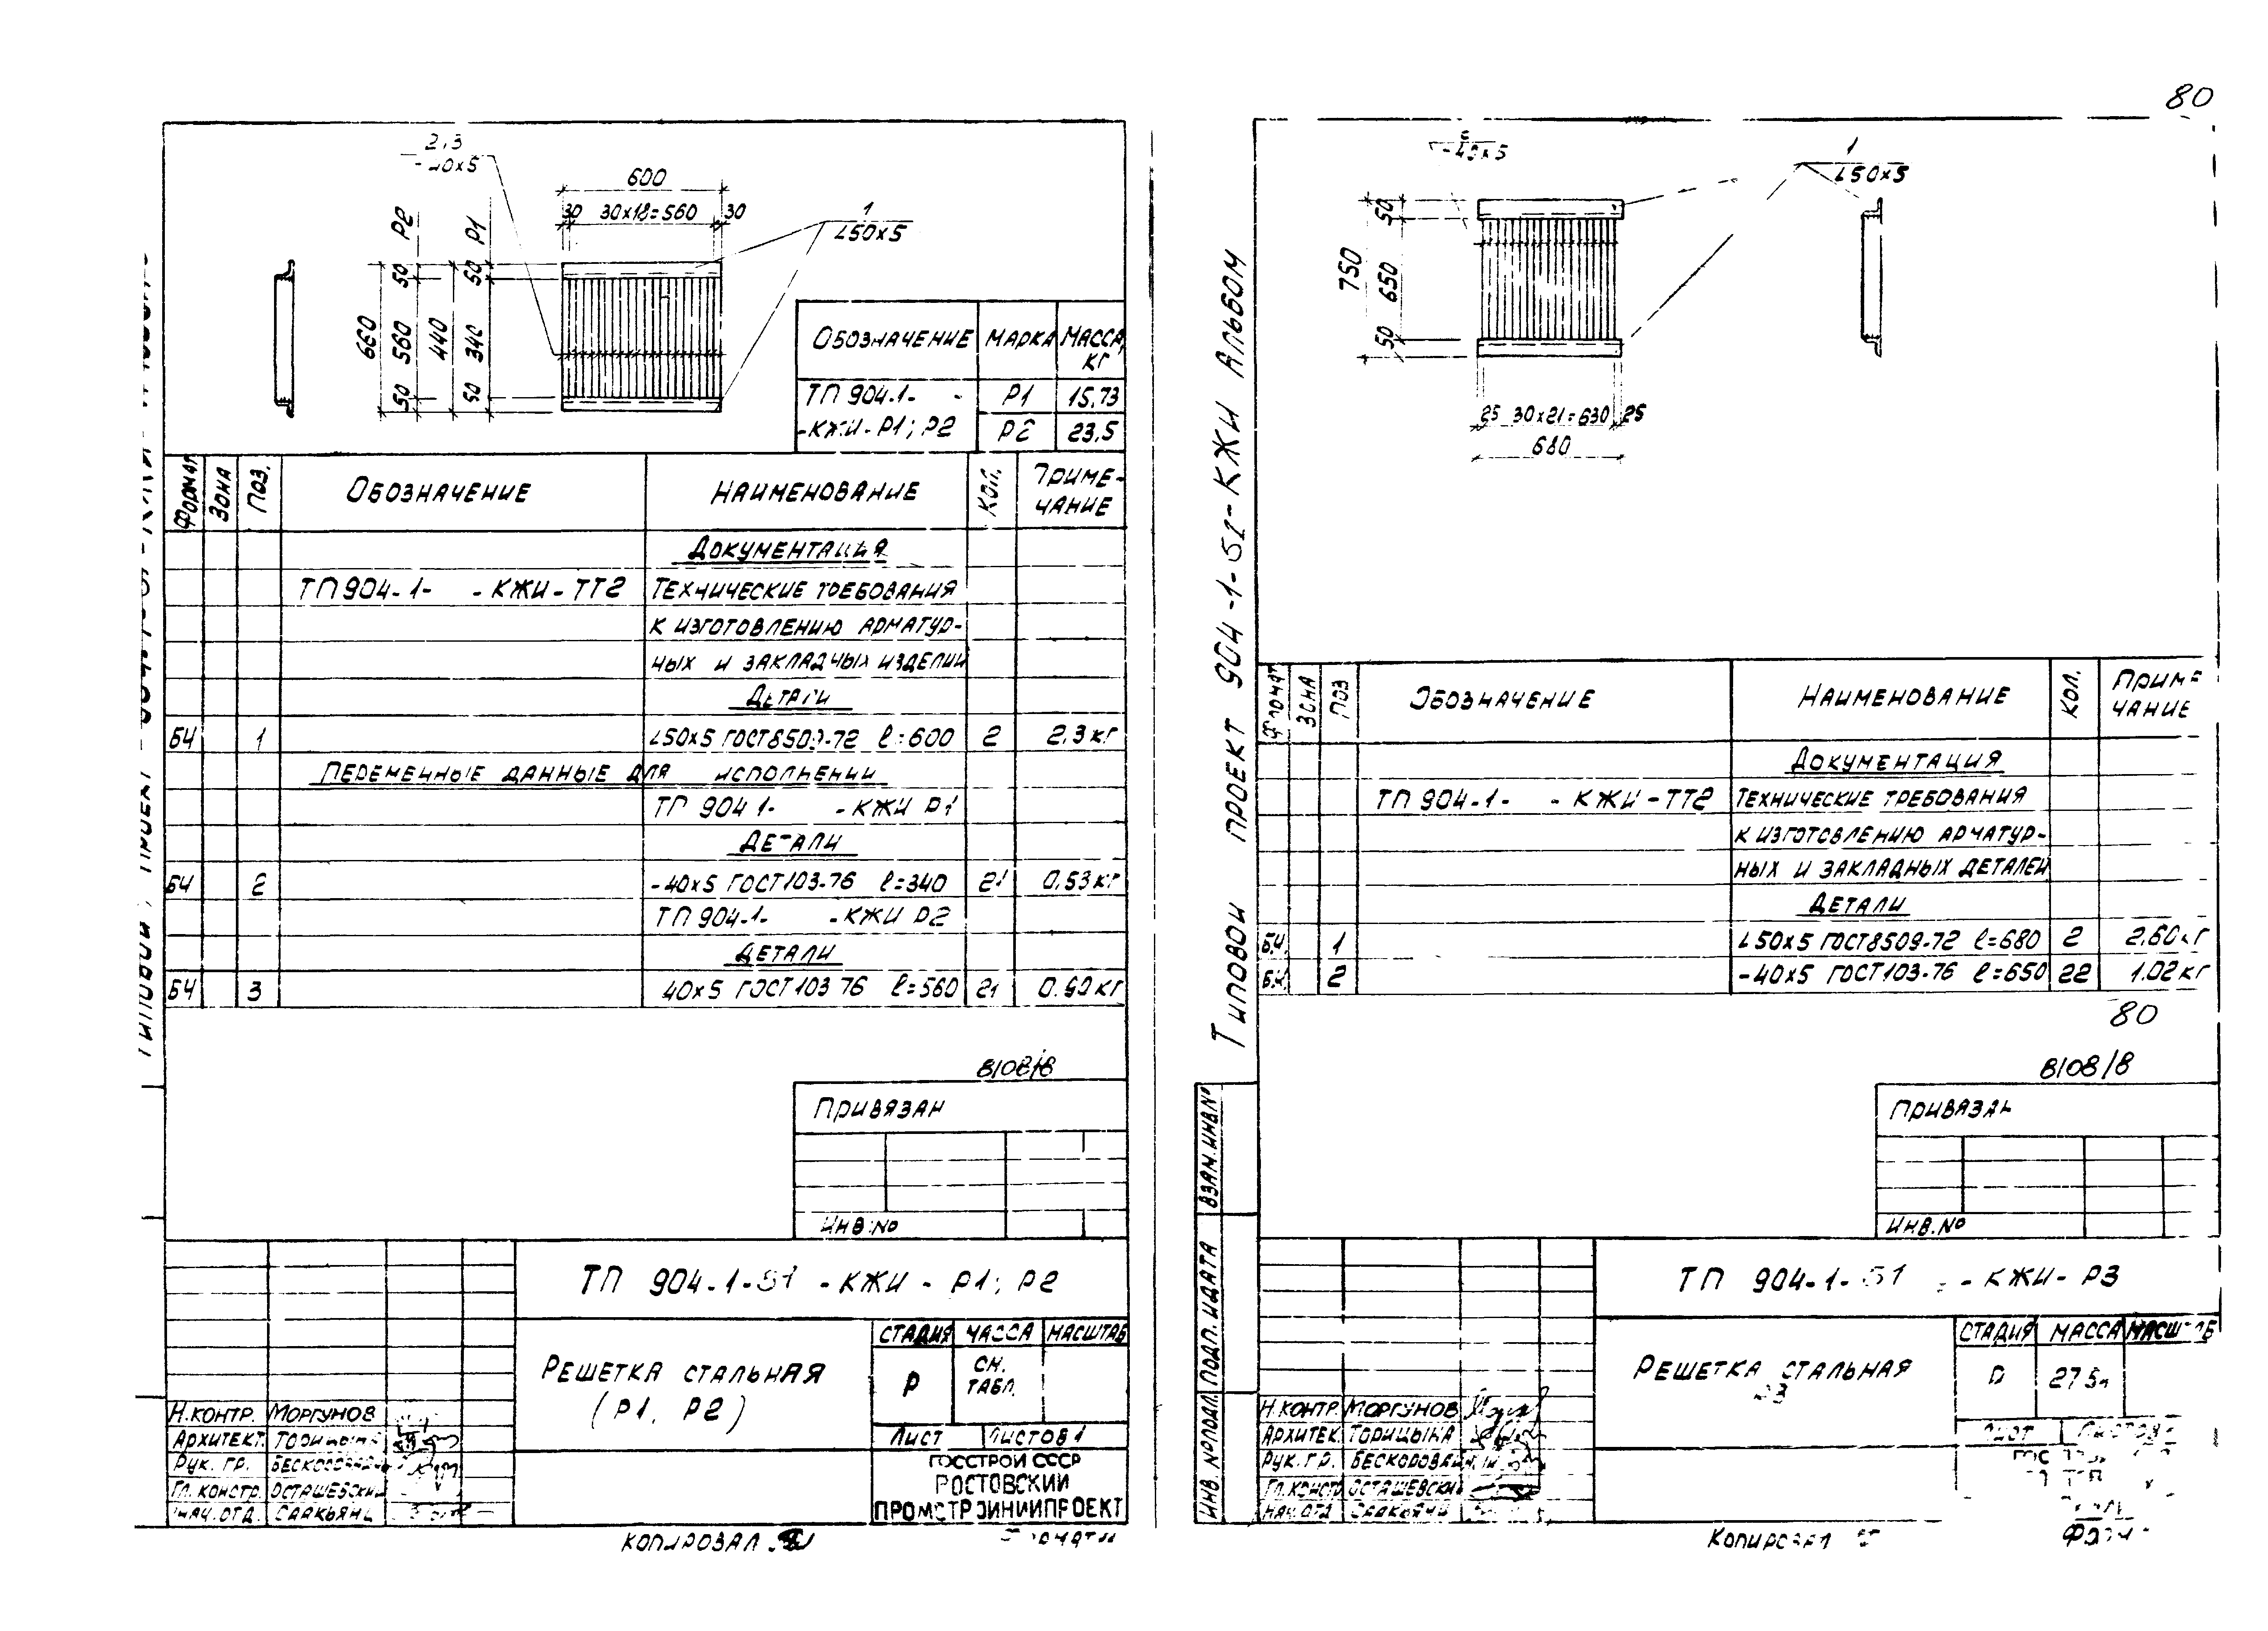 80
2,3
-40х5
600
30 30х18=560 30
1
∠50х5
Р2 Р1
50 50
660 560 440 340
50 50
ОБОЗНАЧЕНИЕ МАРКА МАССА, КГ
ТП 904-1- - Р1 15,73
-КЖИ-Р1; Р2 Р2 23,5
ФОРМАТ ЗОНА ПОЗ. ОБОЗНАЧЕНИЕ НАИМЕНОВАНИЕ КОЛ. ПРИМЕ-
ЧАНИЕ
ДОКУМЕНТАЦИЯ
ТП 904-1- -КЖИ-ТТ2 ТЕХНИЧЕСКИЕ ТРЕБОВАНИЯ
К ИЗГОТОВЛЕНИЮ АРМАТУР-
НЫХ И ЗАКЛАДНЫХ ИЗДЕЛИЙ
ДЕТАЛИ
БЧ 1 ∠50х5 ГОСТ 8509-72 ℓ=600 2 2,3 кг
ПЕРЕМЕННЫЕ ДАННЫЕ ДЛЯ ИСПОЛНЕНИЙ
ТП 904 1- -КЖИ Р1
ДЕТАЛИ
БЧ 2 -40х5 ГОСТ 103-76 ℓ=340 21 0,53 кг
ТП 904-1- -КЖИ Р2
ДЕТАЛИ
БЧ 3 40х5 ГОСТ 103 76 ℓ=560 21 0.90 кг
8108/8
ПРИВЯЗАН
ИНВ.№
ТП 904-1-51 -КЖИ - Р1; Р2
РЕШЕТКА СТАЛЬНАЯ
(Р1, Р2)
СТАДИЯ МАССА МАСШТАБ
Р СМ. ТАБЛ.
ЛИСТ ЛИСТОВ 1
ГОССТРОЙ СССР
РОСТОВСКИЙ
ПРОМСТРОЙНИИПРОЕКТ
Н.КОНТР. МОРГУНОВ
АРХИТЕКТ. ТОРИЦЫНА
РУК. ГР.
ГЛ. КОНСТР. ОСТАШЕВСКИЙ
НАЧ.ОТД. СААКЬЯНЦ
КОПИРОВАЛ
ТИПОВОЙ ПРОЕКТ 904-1-52-КЖИ АЛЬБОМ
-40х5
1
∠50х5
50
750 650
50
25 30х21=630 25
680
ФОРМАТ ЗОНА ПОЗ ОБОЗНАЧЕНИЕ НАИМЕНОВАНИЕ КОЛ. ПРИМЕ
ЧАНИЕ
ДОКУМЕНТАЦИЯ
ТП 904-1- -КЖИ-ТТ2 ТЕХНИЧЕСКИЕ ТРЕБОВАНИЯ
К ИЗГОТОВЛЕНИЮ АРМАТУР-
НЫХ И ЗАКЛАДНЫХ ДЕТАЛЕЙ
ДЕТАЛИ
БЧ. 1 ∠50х5 ГОСТ 8509-72 ℓ=680 2 2.60 кг
БЧ. 2 -40х5 ГОСТ 103-76 ℓ=650 22 1.02 кг
80
8108/8
ПРИВЯЗАН
ИНВ.№
ВЗАМ.ИНВ№
ПОДП. И ДАТА
ИНВ. №ПОДЛ.
ТП 904-1-51 -КЖИ-Р3
РЕШЕТКА СТАЛЬНАЯ
Р3
СТАДИЯ МАССА МАСШТАБ
Н.КОНТР МОРГУНОВ
АРХИТЕК. ТОРИЦЫНА
РУК.ГР.
ГЛ. КОНСТР ОСТАШЕВСКИЙ
НАЧ.ОТД СААКЬЯНЦ
КОПИРОВАЛ